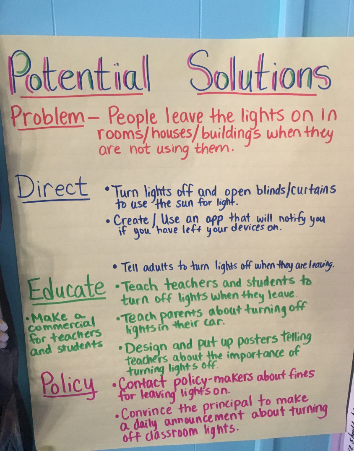 Potential Solutions
Problem – People leave the lights on in
rooms/houses/buildings when they
are not using them.
Direct
• Turn lights off and open blinds/curtains
to use the sun for light.
• Create / Use an app that will notify you
if you have left your devices on.
• Tell adults to turn lights off when they are leaving.
Educate
• Make a
commercial
for teachers
and students
• Teach teachers and students to
turn off lights when they leave.
• Teach parents about turning off
lights in their car.
• Design and put up posters telling
teachers about the importance of
turning lights off.
Policy
• Contact policy-makers about fines
for leaving lights on.
• Convince the principal to make
a daily announcement about turning
off classroom lights.